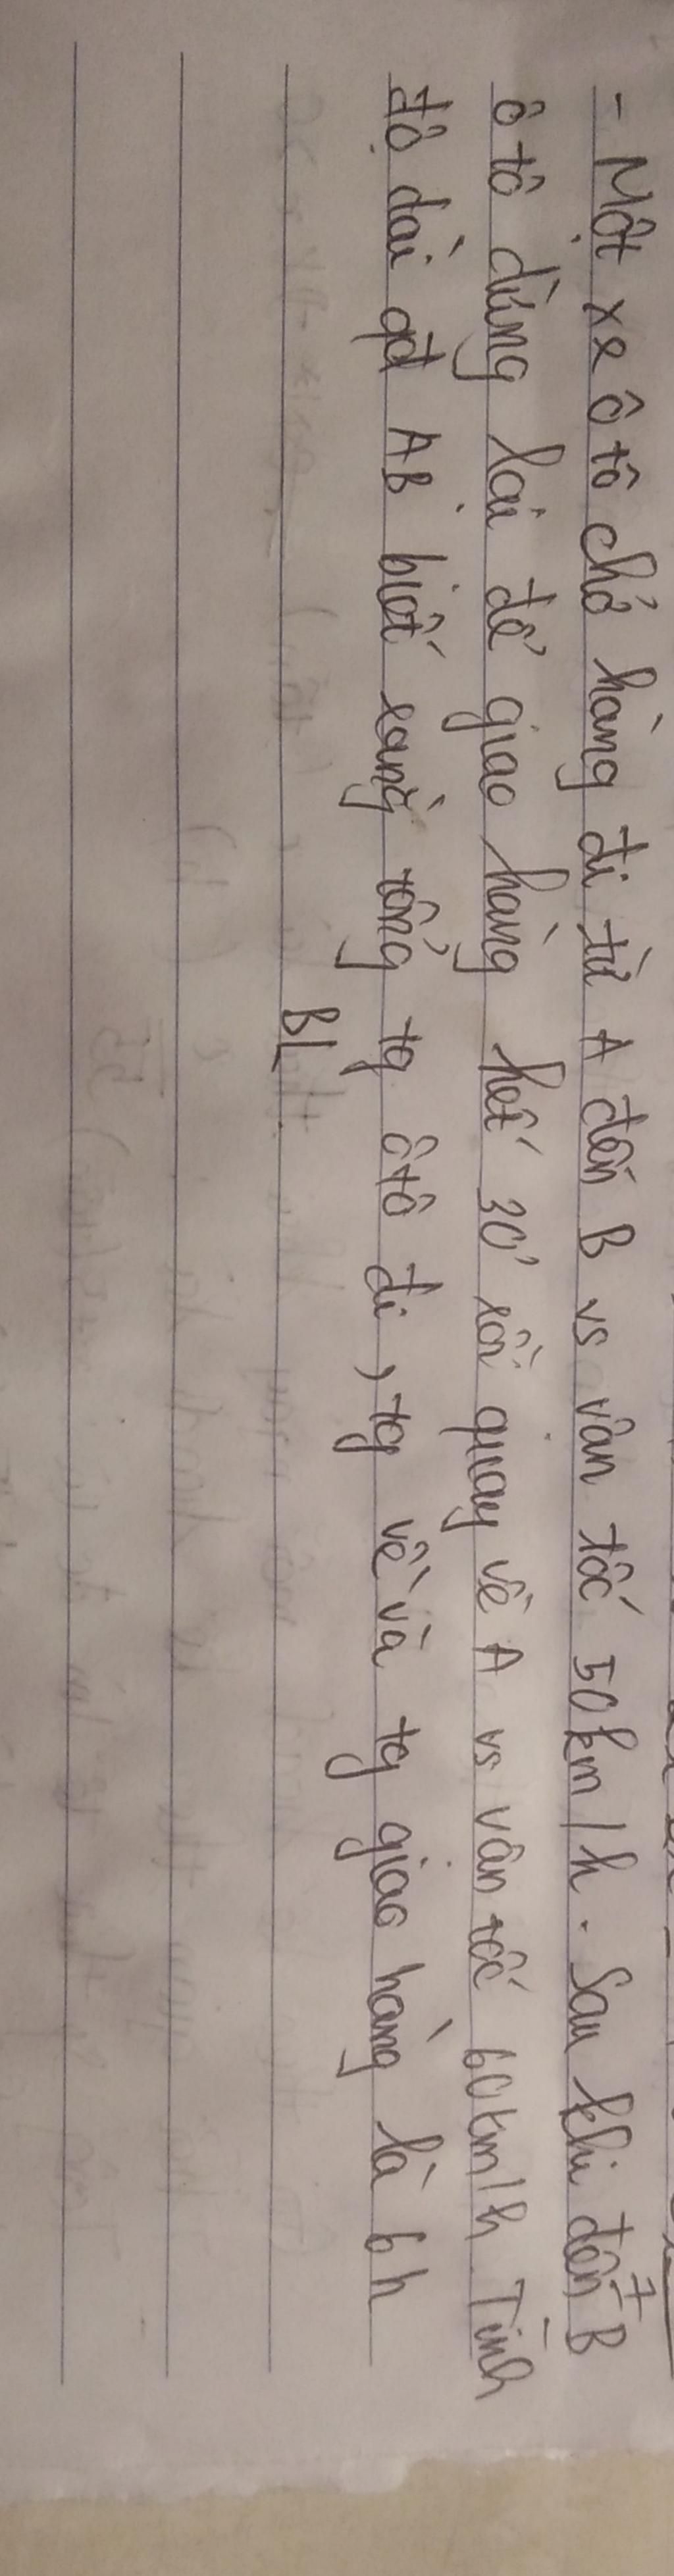 - Một xe ô tô chở hàng đi từ A đến B vs vân tốc 50km/h. Sau khi đến B
ô tô dừng lại để giao hàng hết 30' rồi quay về A vs vân tốc 60km/h Tính
độ dài qđ AB biết rằng tổng tg ôtô đi, tg về và tg giao hàng là 6h
BL